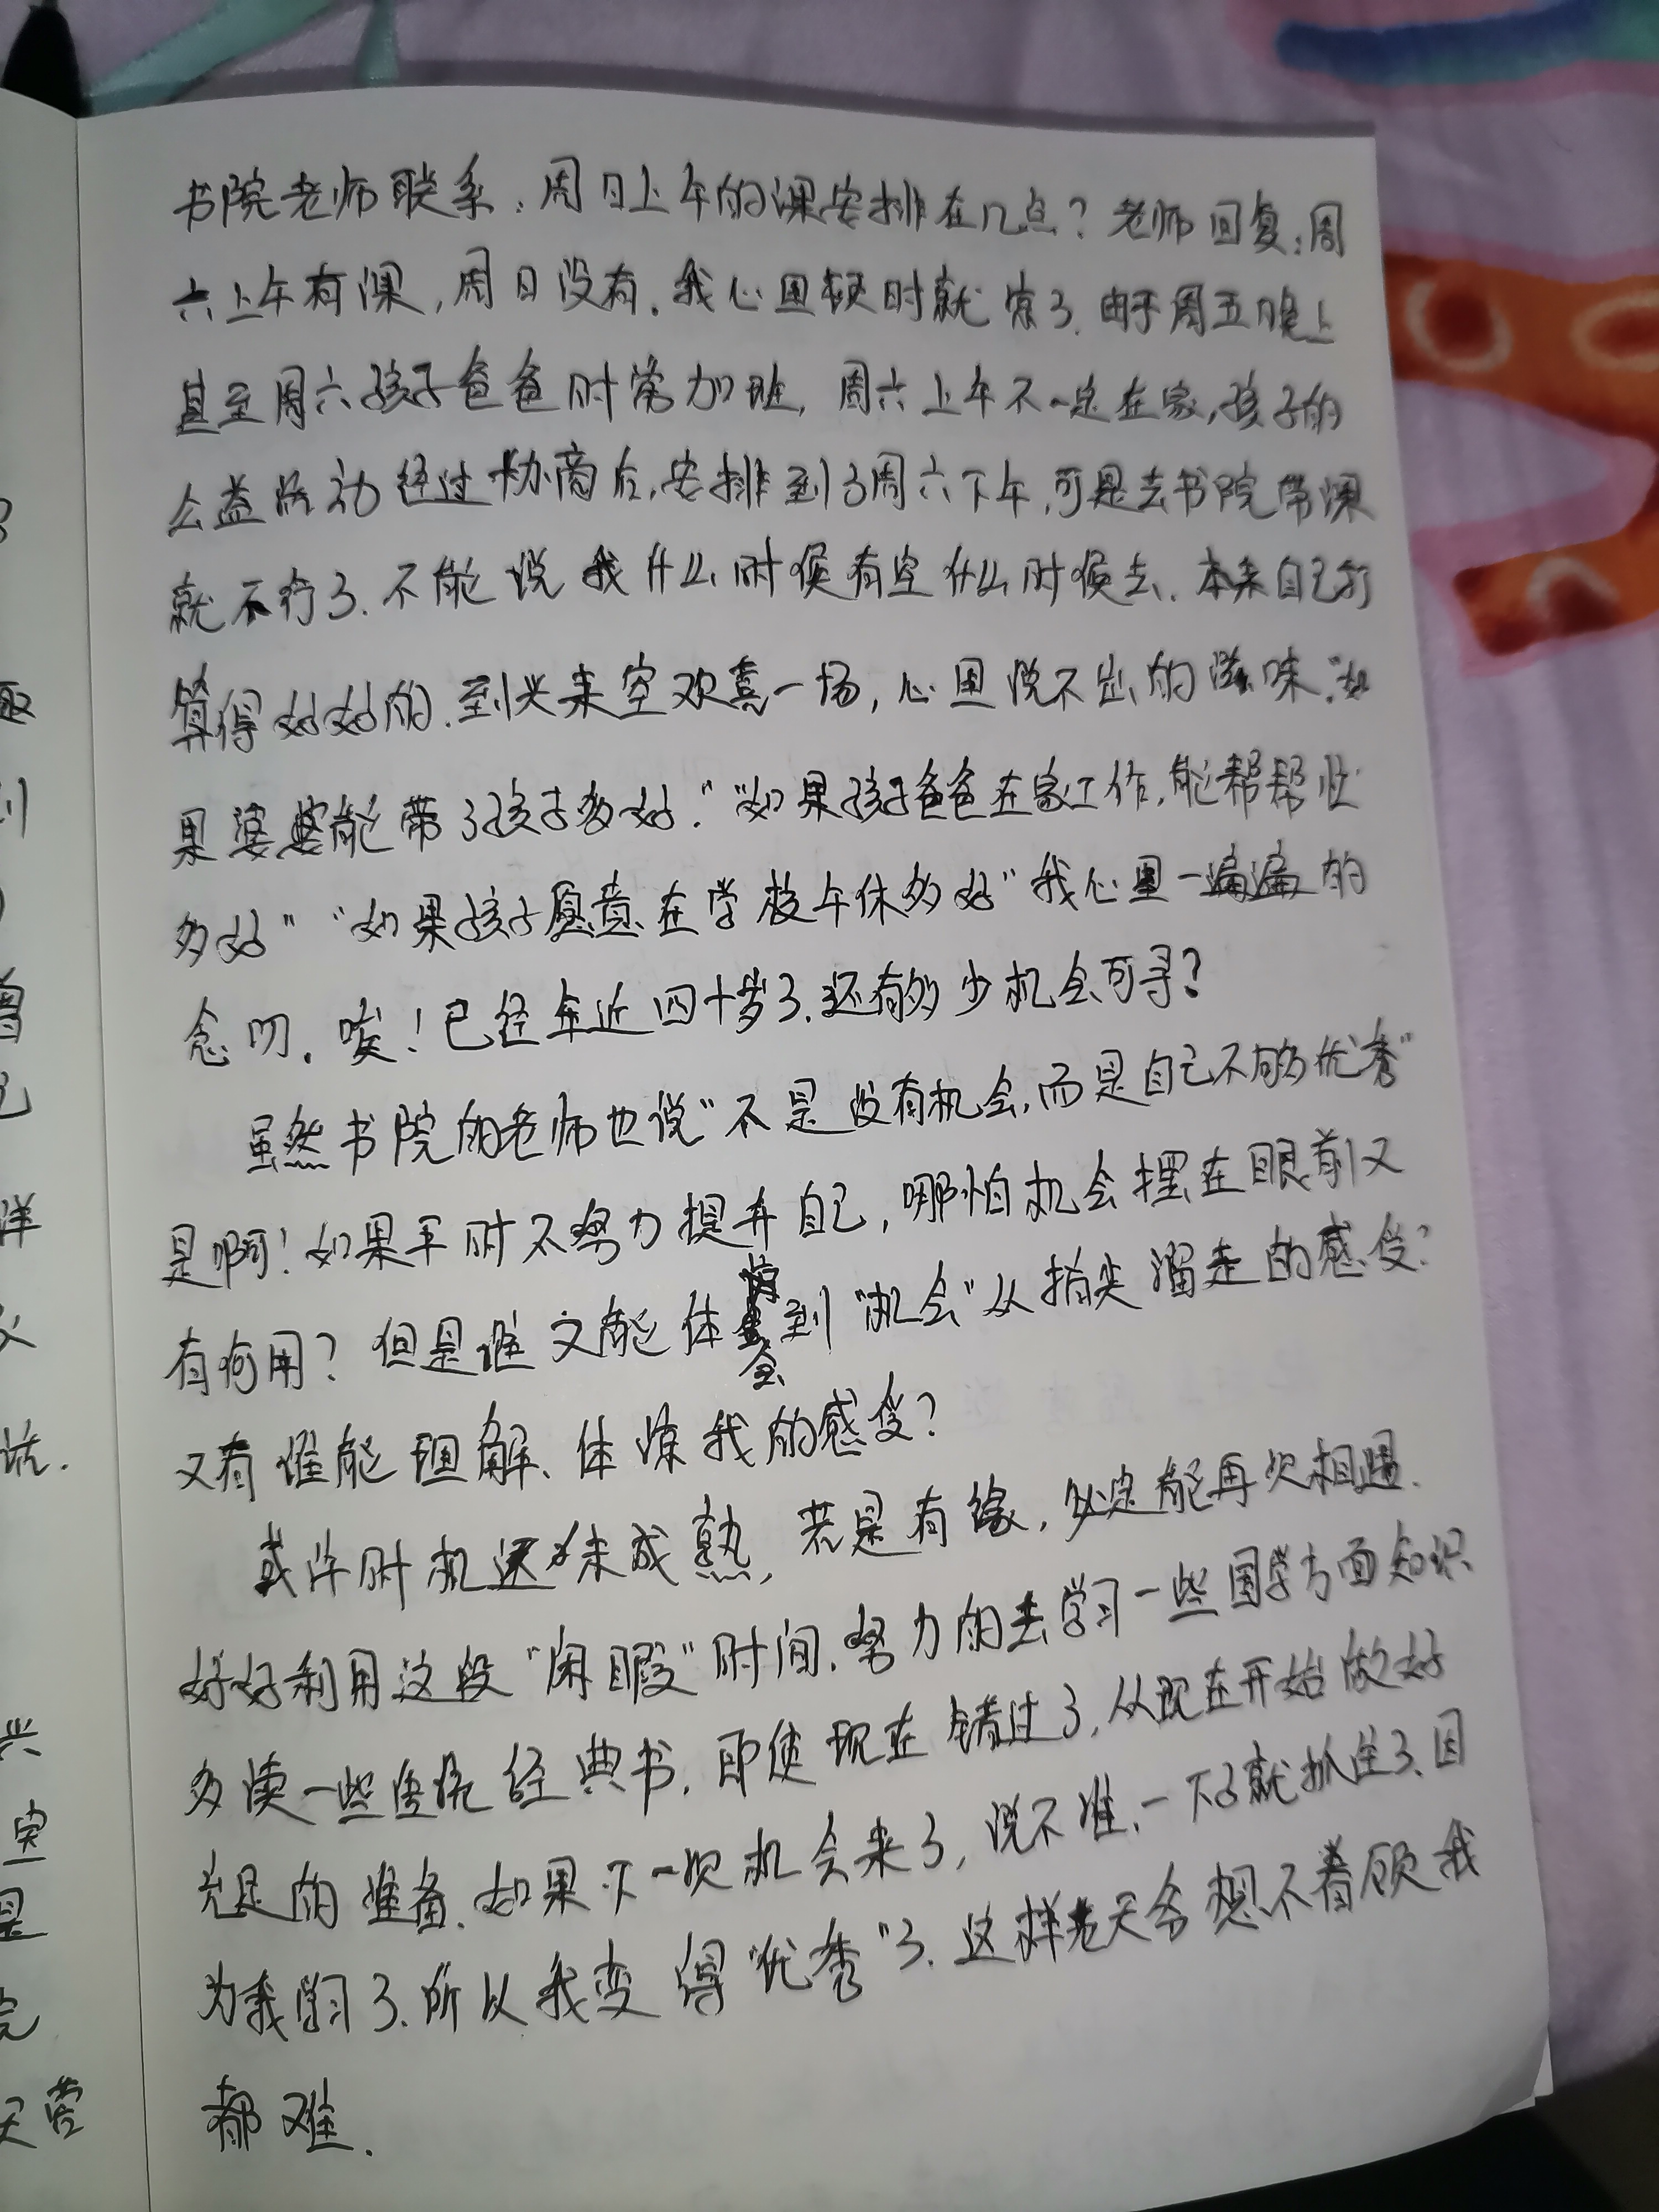 书院老师联系：周日上午的课安排在几点？老师回复：周
六上午有课，周日没有。我心里顿时就凉了。由于周五晚上
甚至周六孩子爸爸时常加班，周六上午不一定在家，孩子的
公益活动经过协商后，安排到了周六下午，可是去书院带课
就不行了。不能说我什么时候有空什么时候去。本来自己打
算得好好的，到头来空欢喜一场，心里说不出的滋味："如
果婆婆能带了孩子多好。""如果孩子爸爸在家工作，能帮帮忙
多好""如果孩子愿意在学校午休多好"我心里一遍遍的
念叨。唉！已经年近四十岁了，还有多少机会可寻？
虽然书院的老师也说"不是没有机会，而是自己不够优秀"
是啊！如果平时不努力提升自己，哪怕机会摆在眼前又
有何用？但是谁又能体会到"机会"从指尖溜走的感受？
又有谁能理解、体谅我的感受？
或许时机还未成熟，若是有缘，必定能再次相遇。
好好利用这段"闲暇"时间，努力的去学习一些国学方面知识
多读一些传统经典书，即使现在错过了，从现在开始做好
充足的准备，如果下一次机会来了，说不准，一下子就抓住了，因
为我学习了，所以我变得"优秀"了。这样老天爷想不眷顾我
都难。
兴
是
院